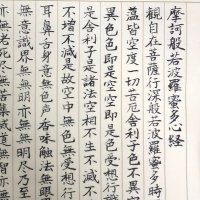 摩訶般若波羅蜜多心經
觀自在菩薩行深般若波羅蜜多時
蘊皆空度一切苦厄舍利子色不異空
異色色即是空空即是色受想行識
是舍利子是諸法空相不生不滅不
不增不減是故空中無色無受想行
耳鼻舌身意無色聲香味觸法無眼
無意識界無無明亦無無明盡乃至
亦無老死盡無苦集滅道無智亦無